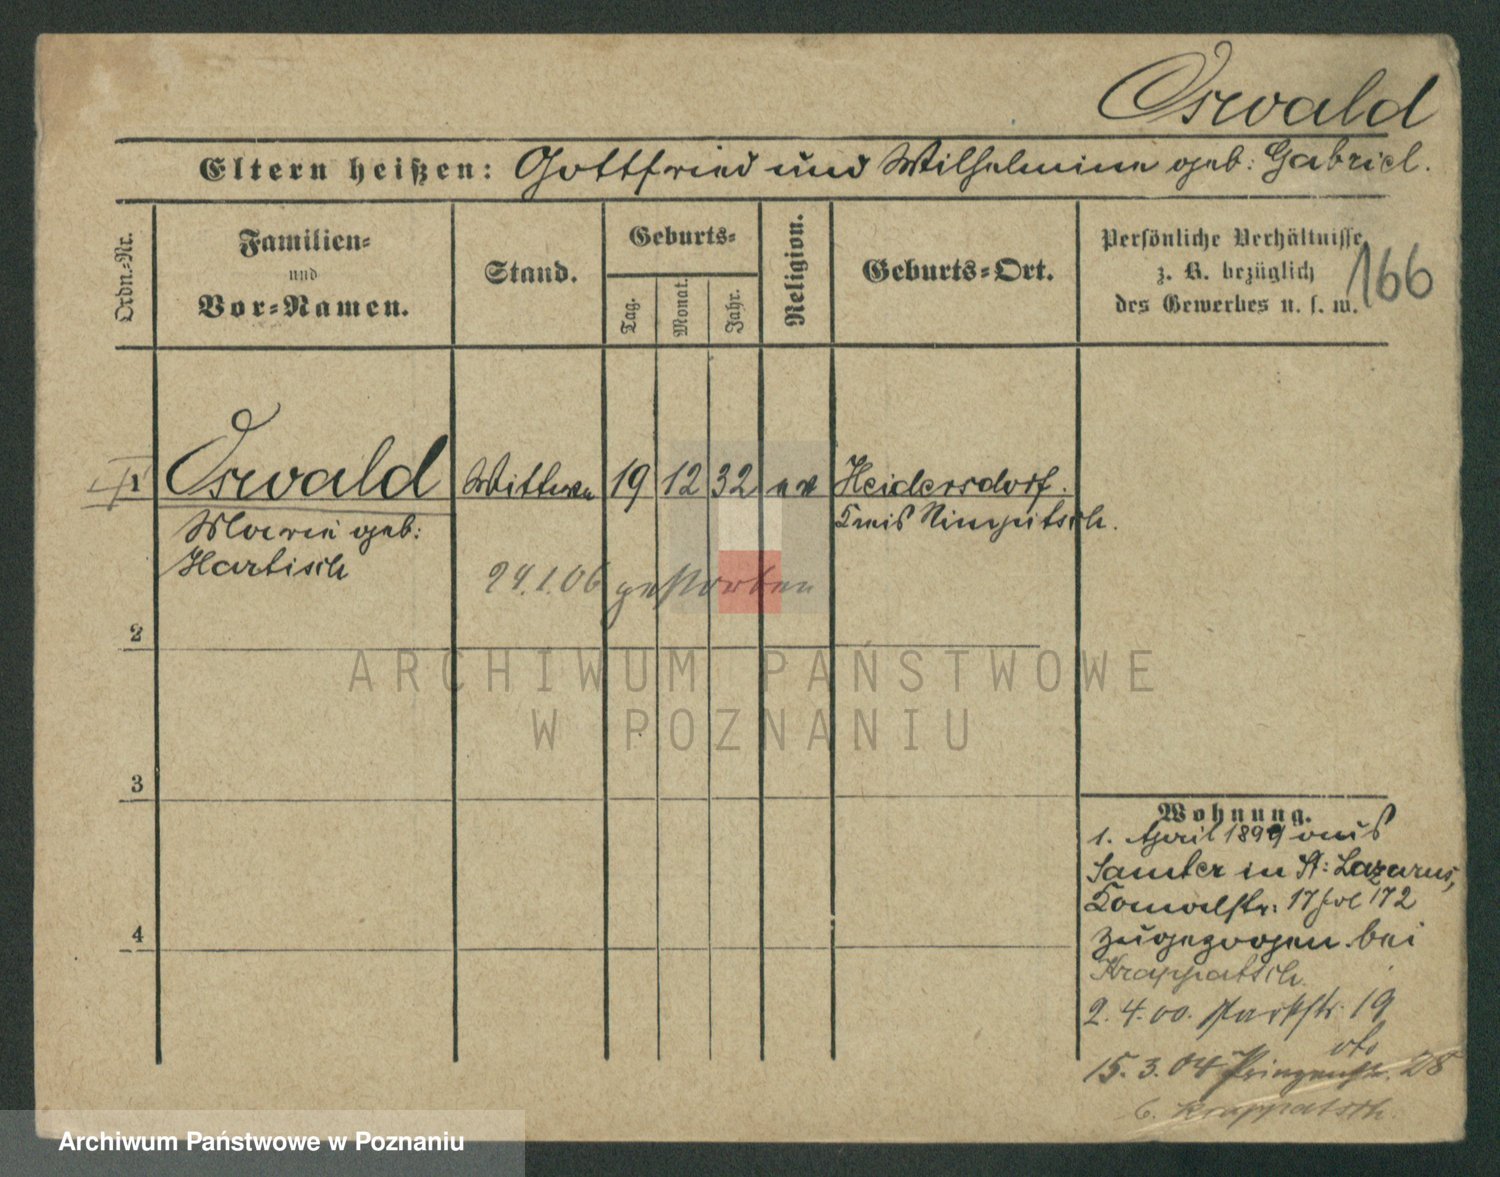 Oswald
Eltern heißen: Gottfried und Wilhelmine geb: Gabriel.
Ordn.-Nr.
Familien-
und
Vor-Namen.
Stand.
Geburts-
Tag.
Monat.
Jahr.
Religion.
Geburts-Ort.
Persönliche Verhältnisse
z. B. bezüglich
des Gewerbes u. s. w.
166
1 Oswald Wittwe 19 12 32 ev Heidersdorf.
Marie geb: Kreis Nimptsch.
Hartisch
24.1.06 gestorben
2
3
4
Wohnung.
1. April 1899 aus
Samter in St: Lazarus,
17 172
zugezogen bei
Krappatsch.
2.4.00. Parkstr. 19
15.3.04 Prinzenstr. 28
b. Krappatsch.
ARCHIWUM PAŃSTWOWE
W POZNANIU
Archiwum Państwowe w Poznaniu